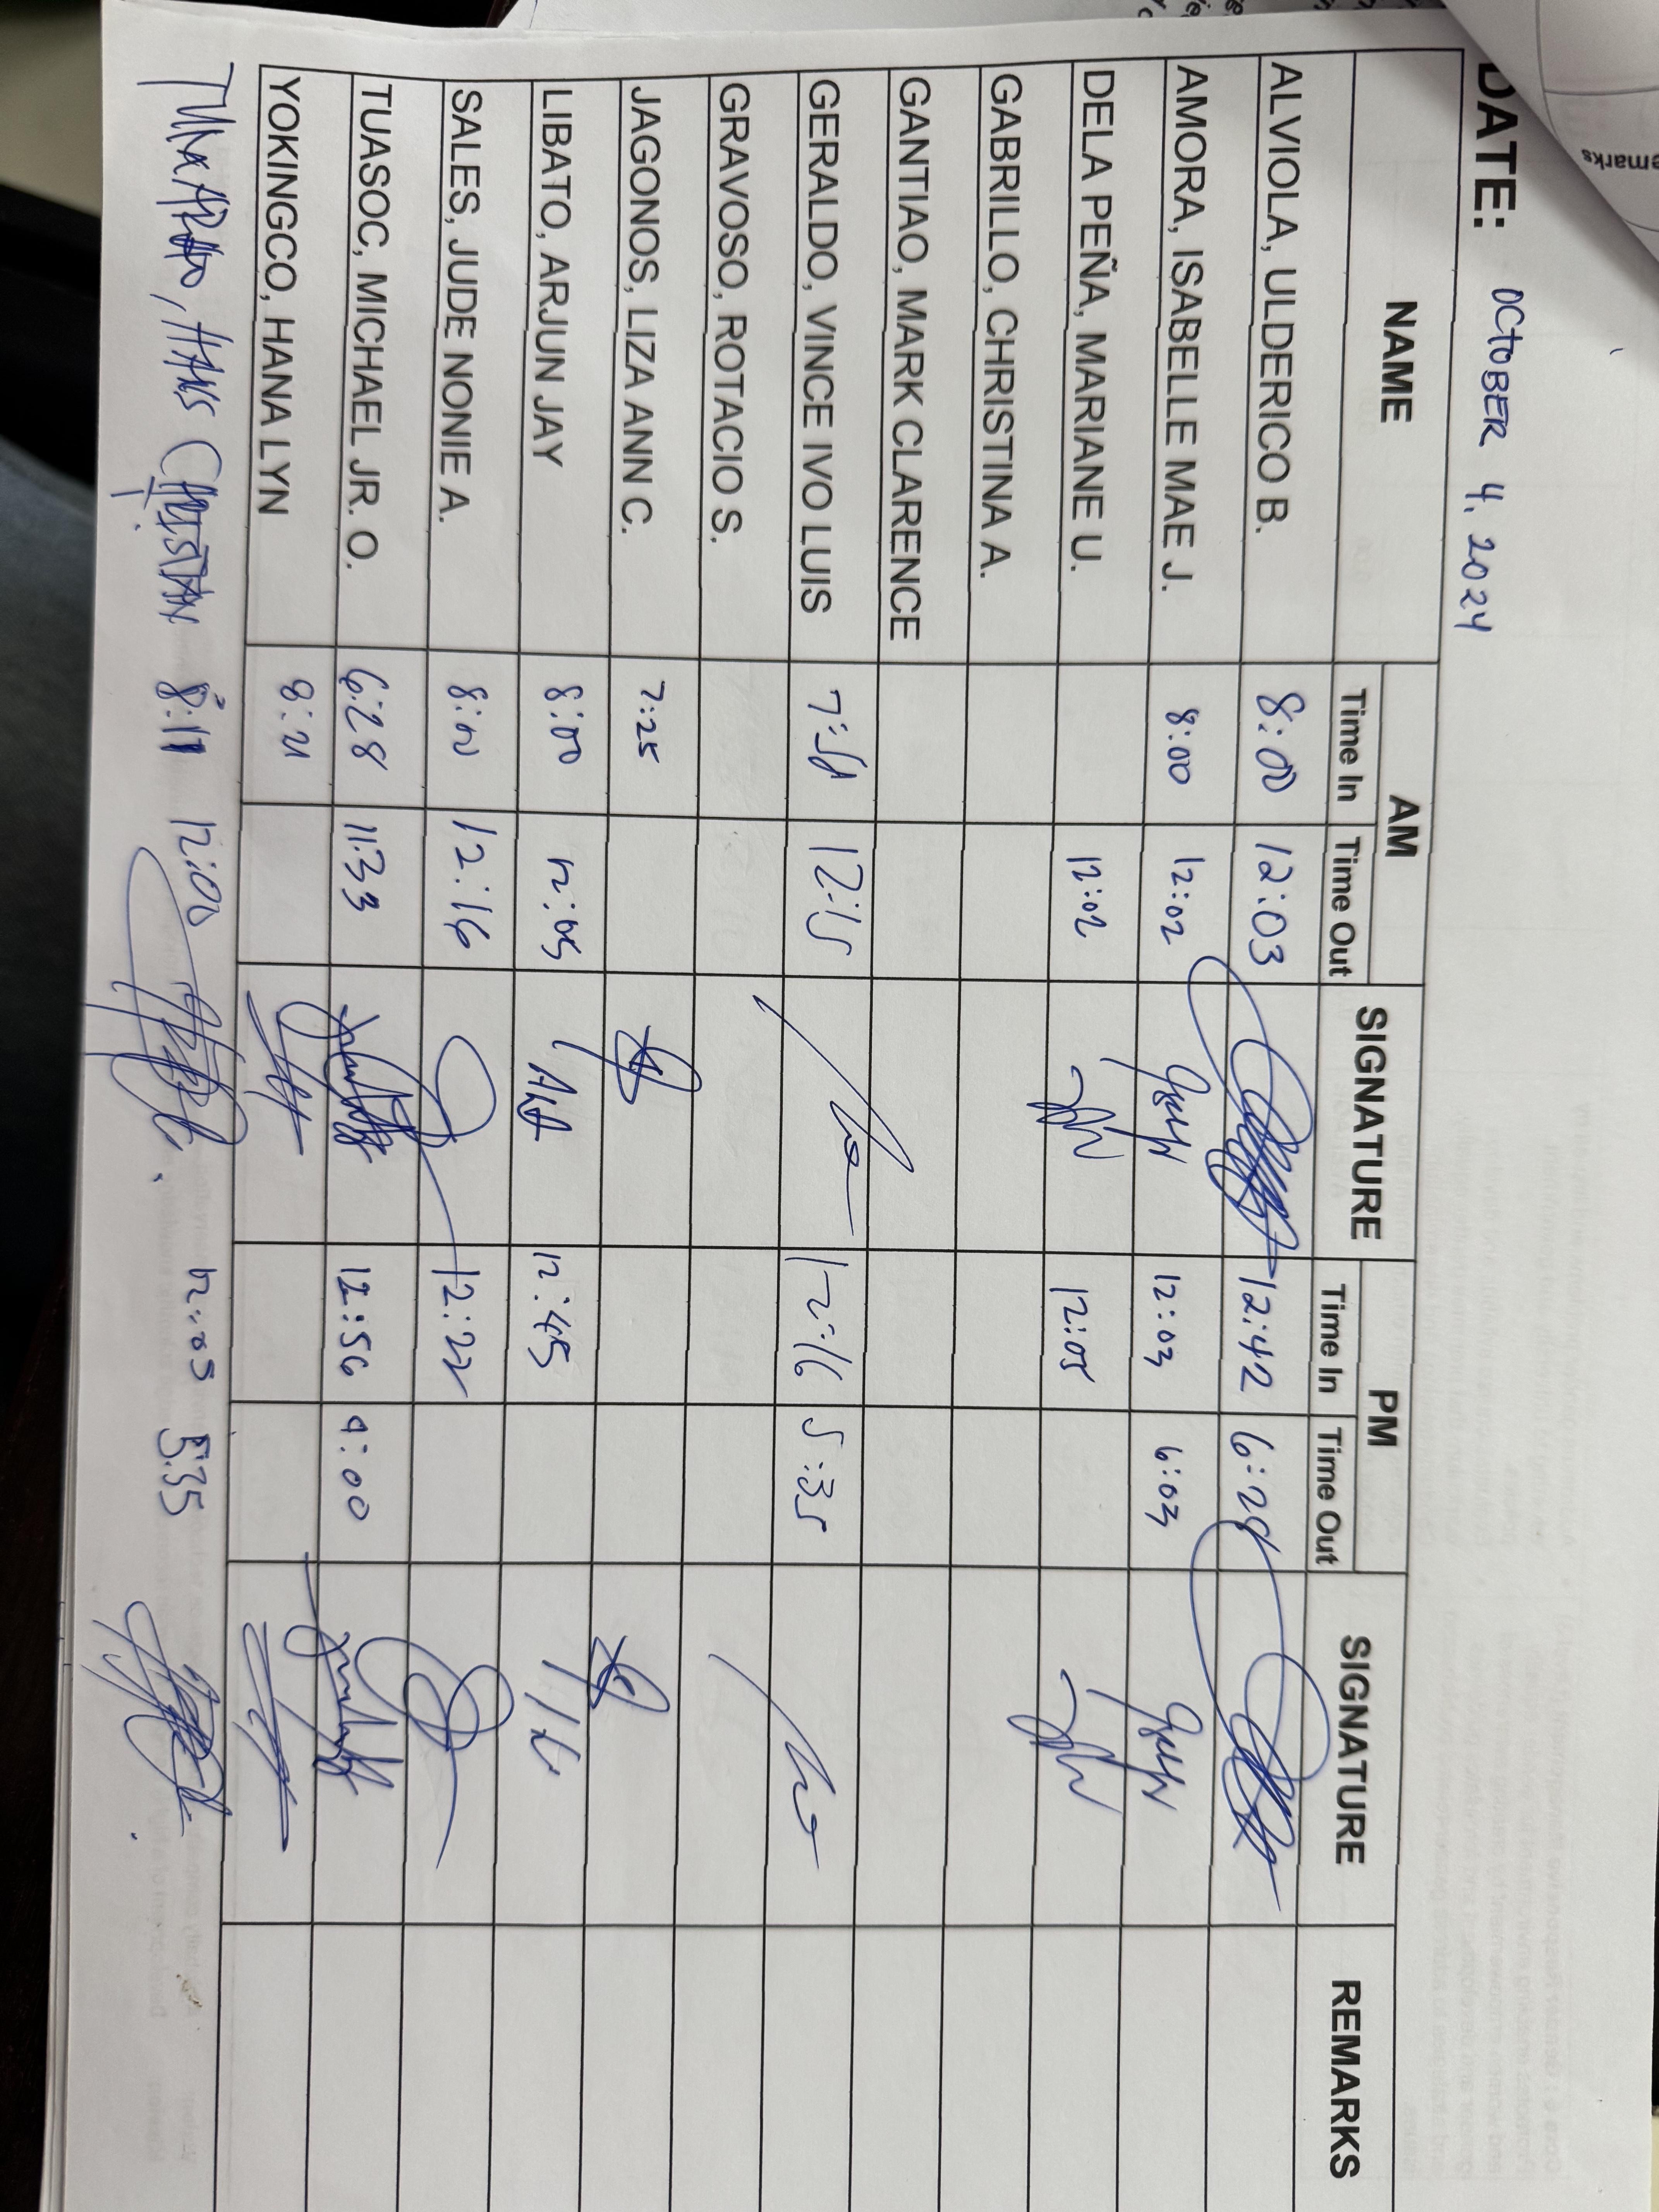 DATE: OCTOBER 4, 2024
NAME AM SIGNATURE PM SIGNATURE REMARKS
Time In Time Out Time In Time Out
ALVIOLA, ULDERICO B. 8:00 12:03 12:42 6:28
AMORA, ISABELLE MAE J. 8:00 12:02 12:03 6:03
DELA PEÑA, MARIANE U. 12:02 12:05
GABRILLO, CHRISTINA A.
GANTIAO, MARK CLARENCE
GERALDO, VINCE IVO LUIS 12:15 12:16 5:35
GRAVOSO, ROTACIO S.
JAGONOS, LIZA ANN C. 7:25
LIBATO, ARJUN JAY 8:00 12:05 12:45
SALES, JUDE NONIE A. 8:00 12:16 12:22
TUASOC, MICHAEL JR. O. 6:28 11:33 12:56 9:00
YOKINGCO, HANA LYN 8:21
HANS CHRISTIAN 8:11 12:00 12:03 5:35
emarks